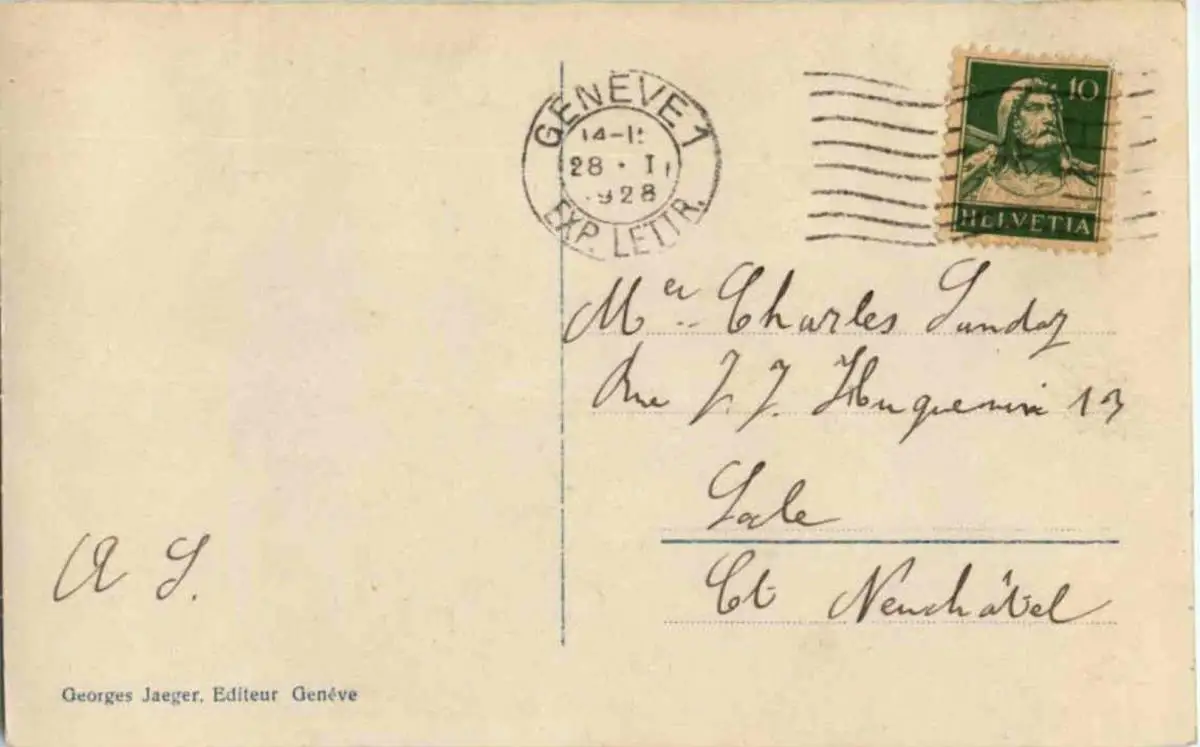 GENÈVE 1
14-1
28 · I
1928
EXP. LETTR.
10
HELVETIA
Mer Charles Sandoz
Rue J. J. Huguenin 13
Locle
Ct Neuchâtel
A S.
Georges Jaeger, Editeur Genéve